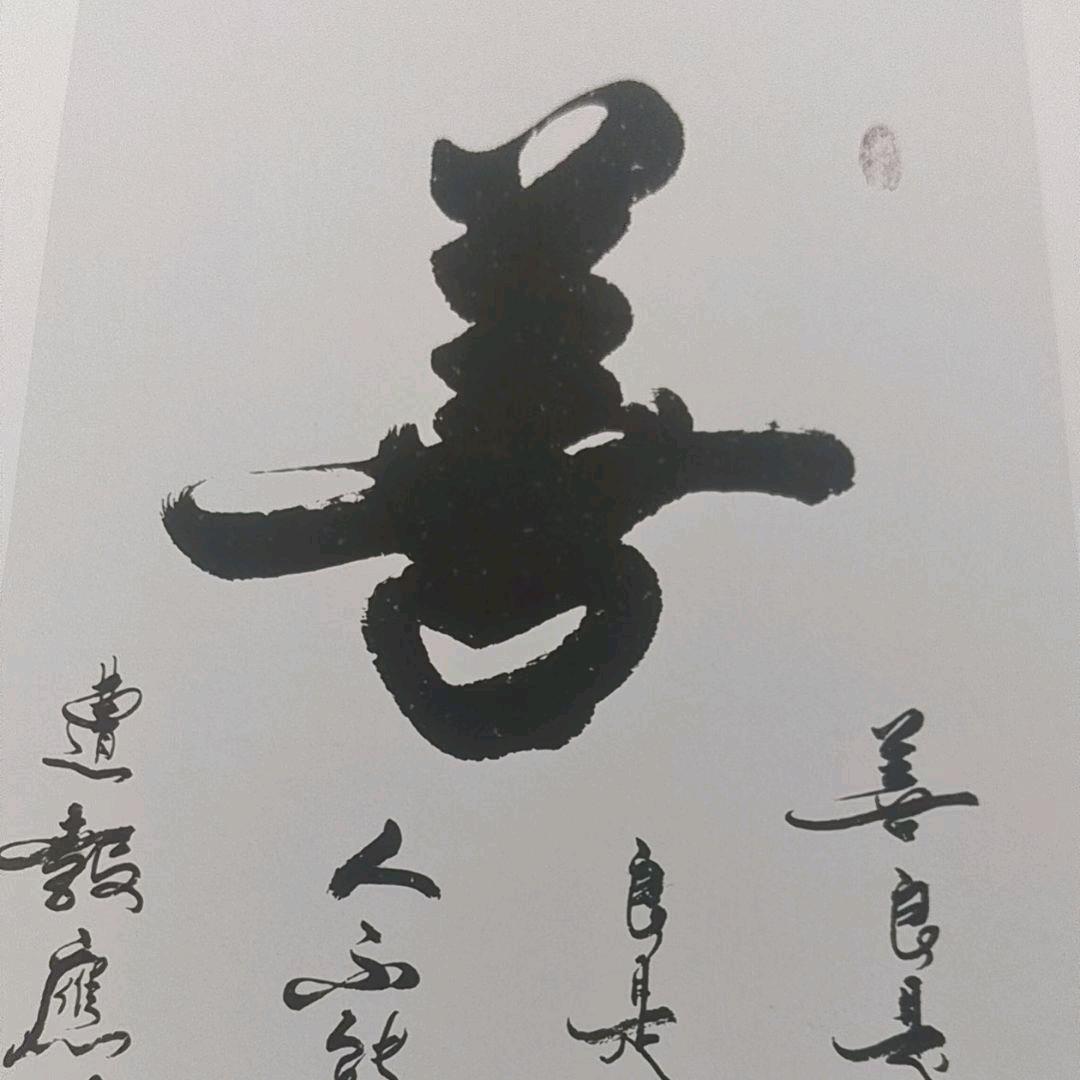 善
善良是
良是
人不能
遭報應